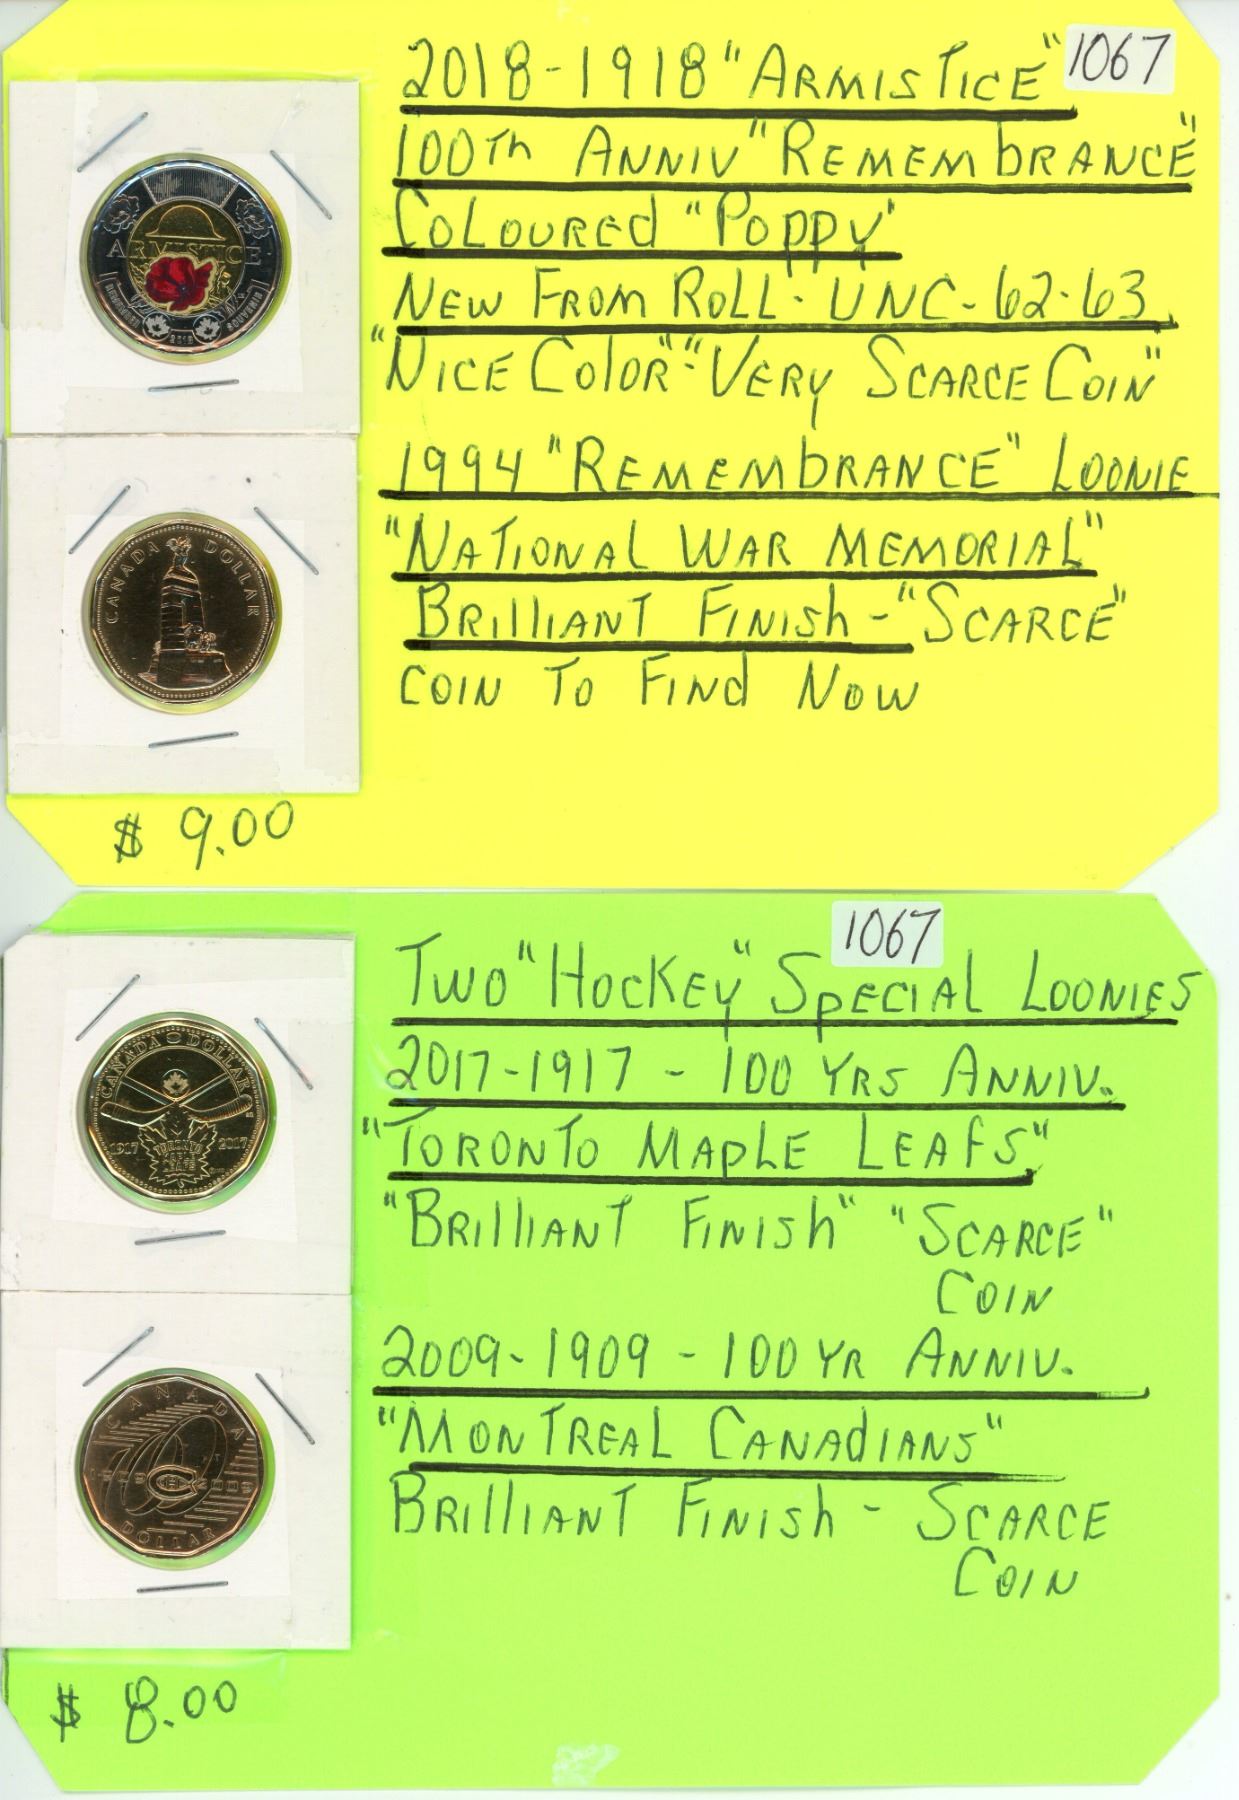 2018-1918 "ARMISTICE"
1067
100Th ANNIV "REMEMbRANCE"
COLOUREd "POPPY"
NEW FROM ROLL - UNC-62-63
"NICE COlOR" - "VERY SCARCE COIN"
1994 "REMEMbRANCE" LOONIE
"NATIONAL WAR MEMORIAL"
BRIllIANT FINISh - "SCARCE"
COIN TO FINd NOW
ARMISTICE
REMEMBER
SOUVENIR
2018
CANADA DOLLAR
$ 9.00
1067
TWO "HOCKEY" SPECIAL LOONIES
2017-1917 - 100 YRS ANNIV.
"TORONTO MAPLE LEAfS"
"BRIllIANT FINISh" "SCARCE"
COIN
2009-1909 - 100 YR ANNIV.
"MONTREAL CANAdIANS"
BRIllIANT FINISh - SCARCE
COIN
CANADA DOLLAR
1917 2017
TORONTO
MAPLE
LEAFS
CANADA
1909 2009
DOLLAR
$ 8.00